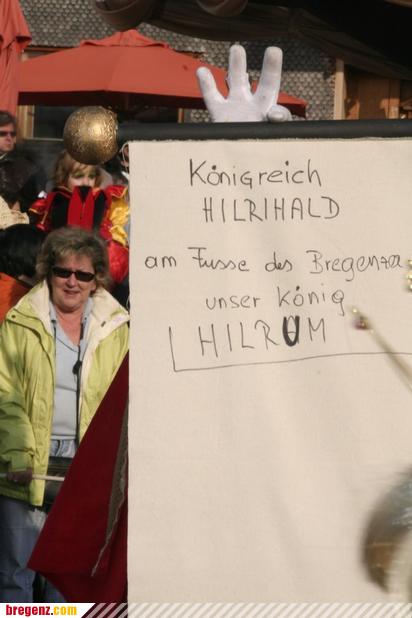 Königreich
HILRIHALD
am Fusse des Bregenzer
unser König
HILRUM
bregenz.com